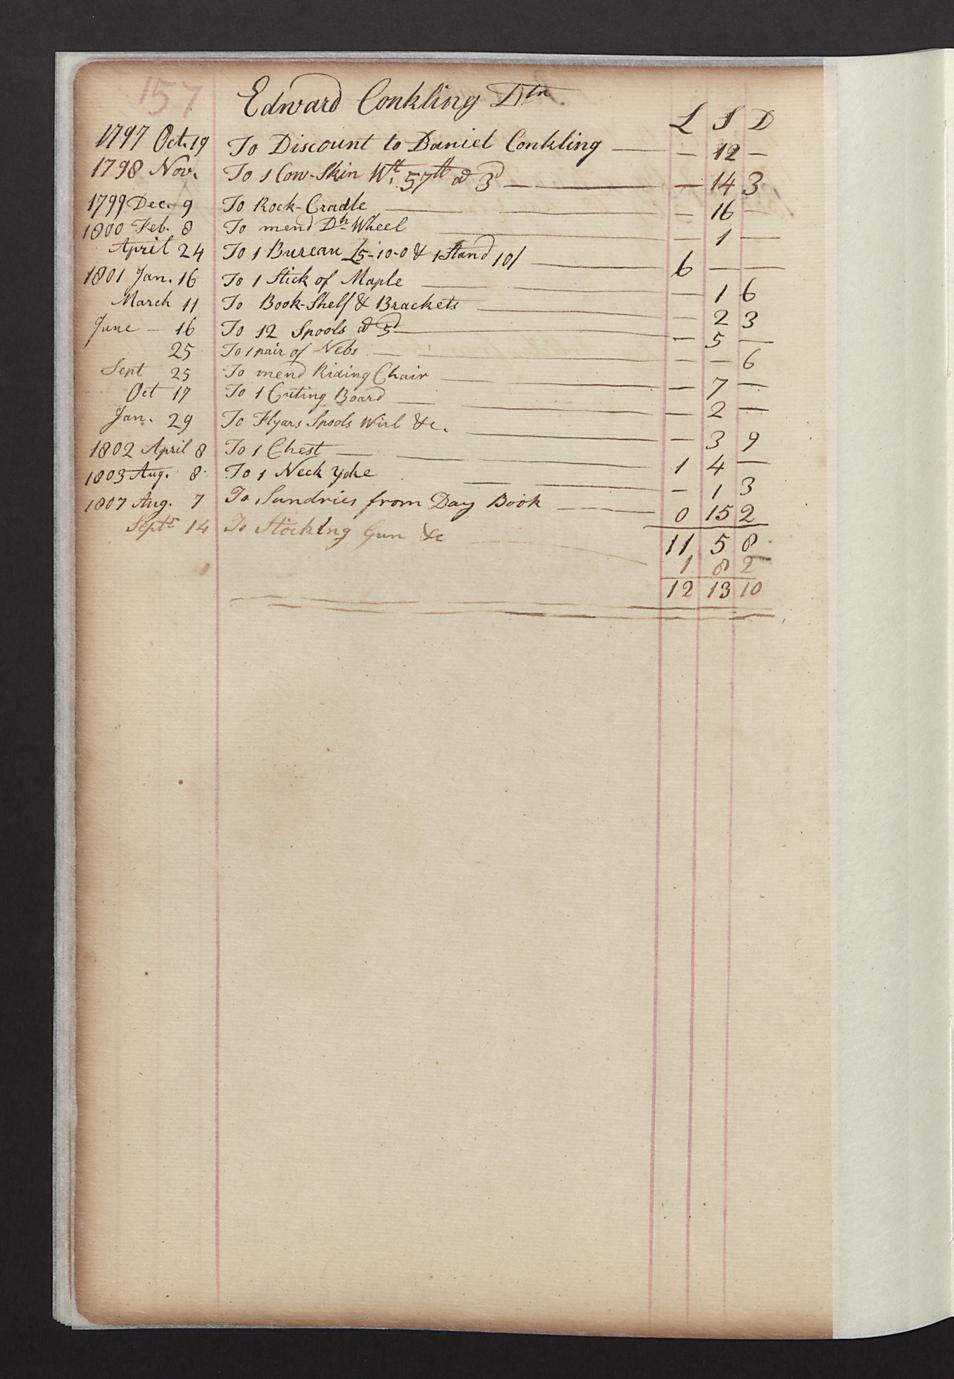 157 Edward Conkling Dtr
L S D
1797 Oct. 19 To Discount to Daniel Conkling — — 12 —
1798 Nov. To 1 Cow-Skin Wt. 57th @ 3d — — 14 3
1799 Dec. 9 To Rock-Cradle — — 16 —
1800 Feb. 8 To mend Dh Wheel — — 1 —
April 24 To 1 Bureau £5-10-0 & 1 Stand 10/ — 6 — —
1801 Jan. 16 To 1 Stick of Maple — — 1 6
March 11 To Book-Shelf & Brackets — — 2 3
June — 16 To 12 Spools @ 5d — — 5 —
25 To 1 pair of Nebs — — — 6
Sept 25 To mend Riding Chair — — 7 —
Oct 17 To 1 Cuting Board — — 2 —
Jan. 29 To Flyars Spools Wirl &c. — — 3 9
1802 April 8 To 1 Chest — 1 4 —
1803 Aug. 8 To 1 Neck Yoke — — 1 3
1807 Aug. 7 To Sundries from Day Book — 0 15 2
11 5 8
Sept. 14 To Stocking Gun &c — 1 8 2
12 13 10